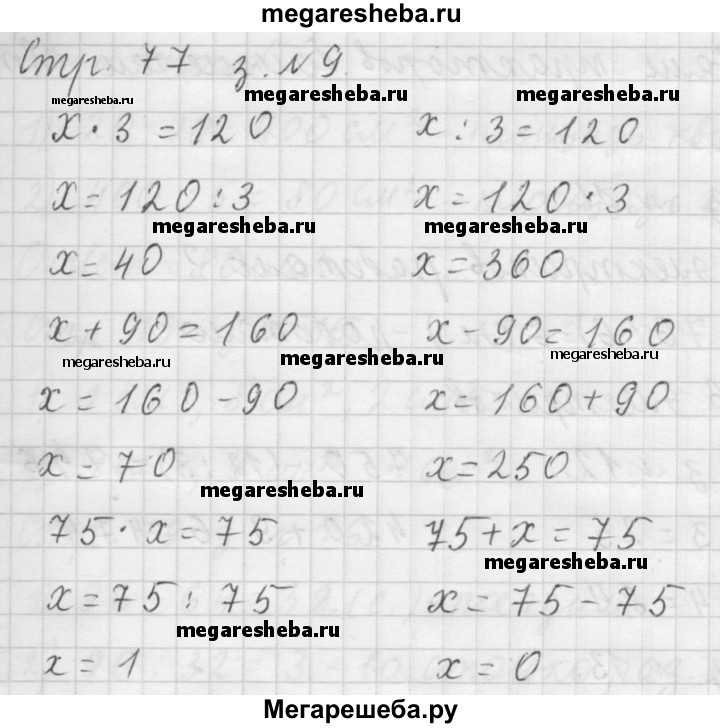 megaresheba.ru
Стр. 77 з. №9.
megaresheba.ru megaresheba.ru megaresheba.ru
x · 3 = 120 x : 3 = 120
x = 120 : 3 x = 120 · 3
megaresheba.ru megaresheba.ru
x = 40 x = 360
x + 90 = 160 x - 90 = 160
megaresheba.ru megaresheba.ru megaresheba.ru
x = 160 - 90 x = 160 + 90
x = 70 x = 250
megaresheba.ru
75 · x = 75 75 + x = 75
megaresheba.ru
x = 75 : 75 x = 75 - 75
megaresheba.ru
x = 1 x = 0
Мегарешеба.ру